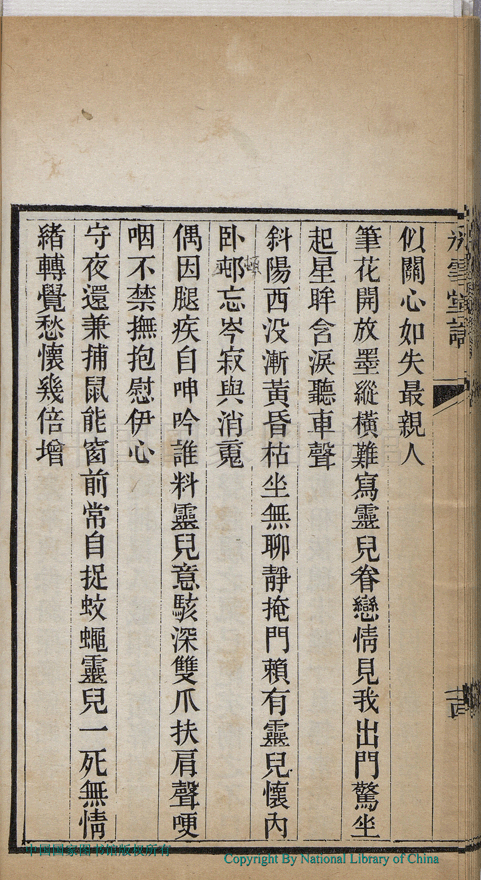 似關心如失最親人
筆花開放墨縱橫難寫靈兒眷戀情見我出門驚坐
起星眸含淚聽車聲
斜陽西没漸黃昏枯坐無聊靜掩門賴有靈兒懷內
卧頓忘岑寂與消䰟
偶因腿疾自呻吟誰料靈兒意駭深雙爪扶肩聲哽
咽不禁撫抱慰伊心
守夜還兼捕鼠能窗前常自捉蚊蠅靈兒一死無情
緒轉覺愁懷幾倍增
中國國家图书馆版权所有
Copyright By National Library of China